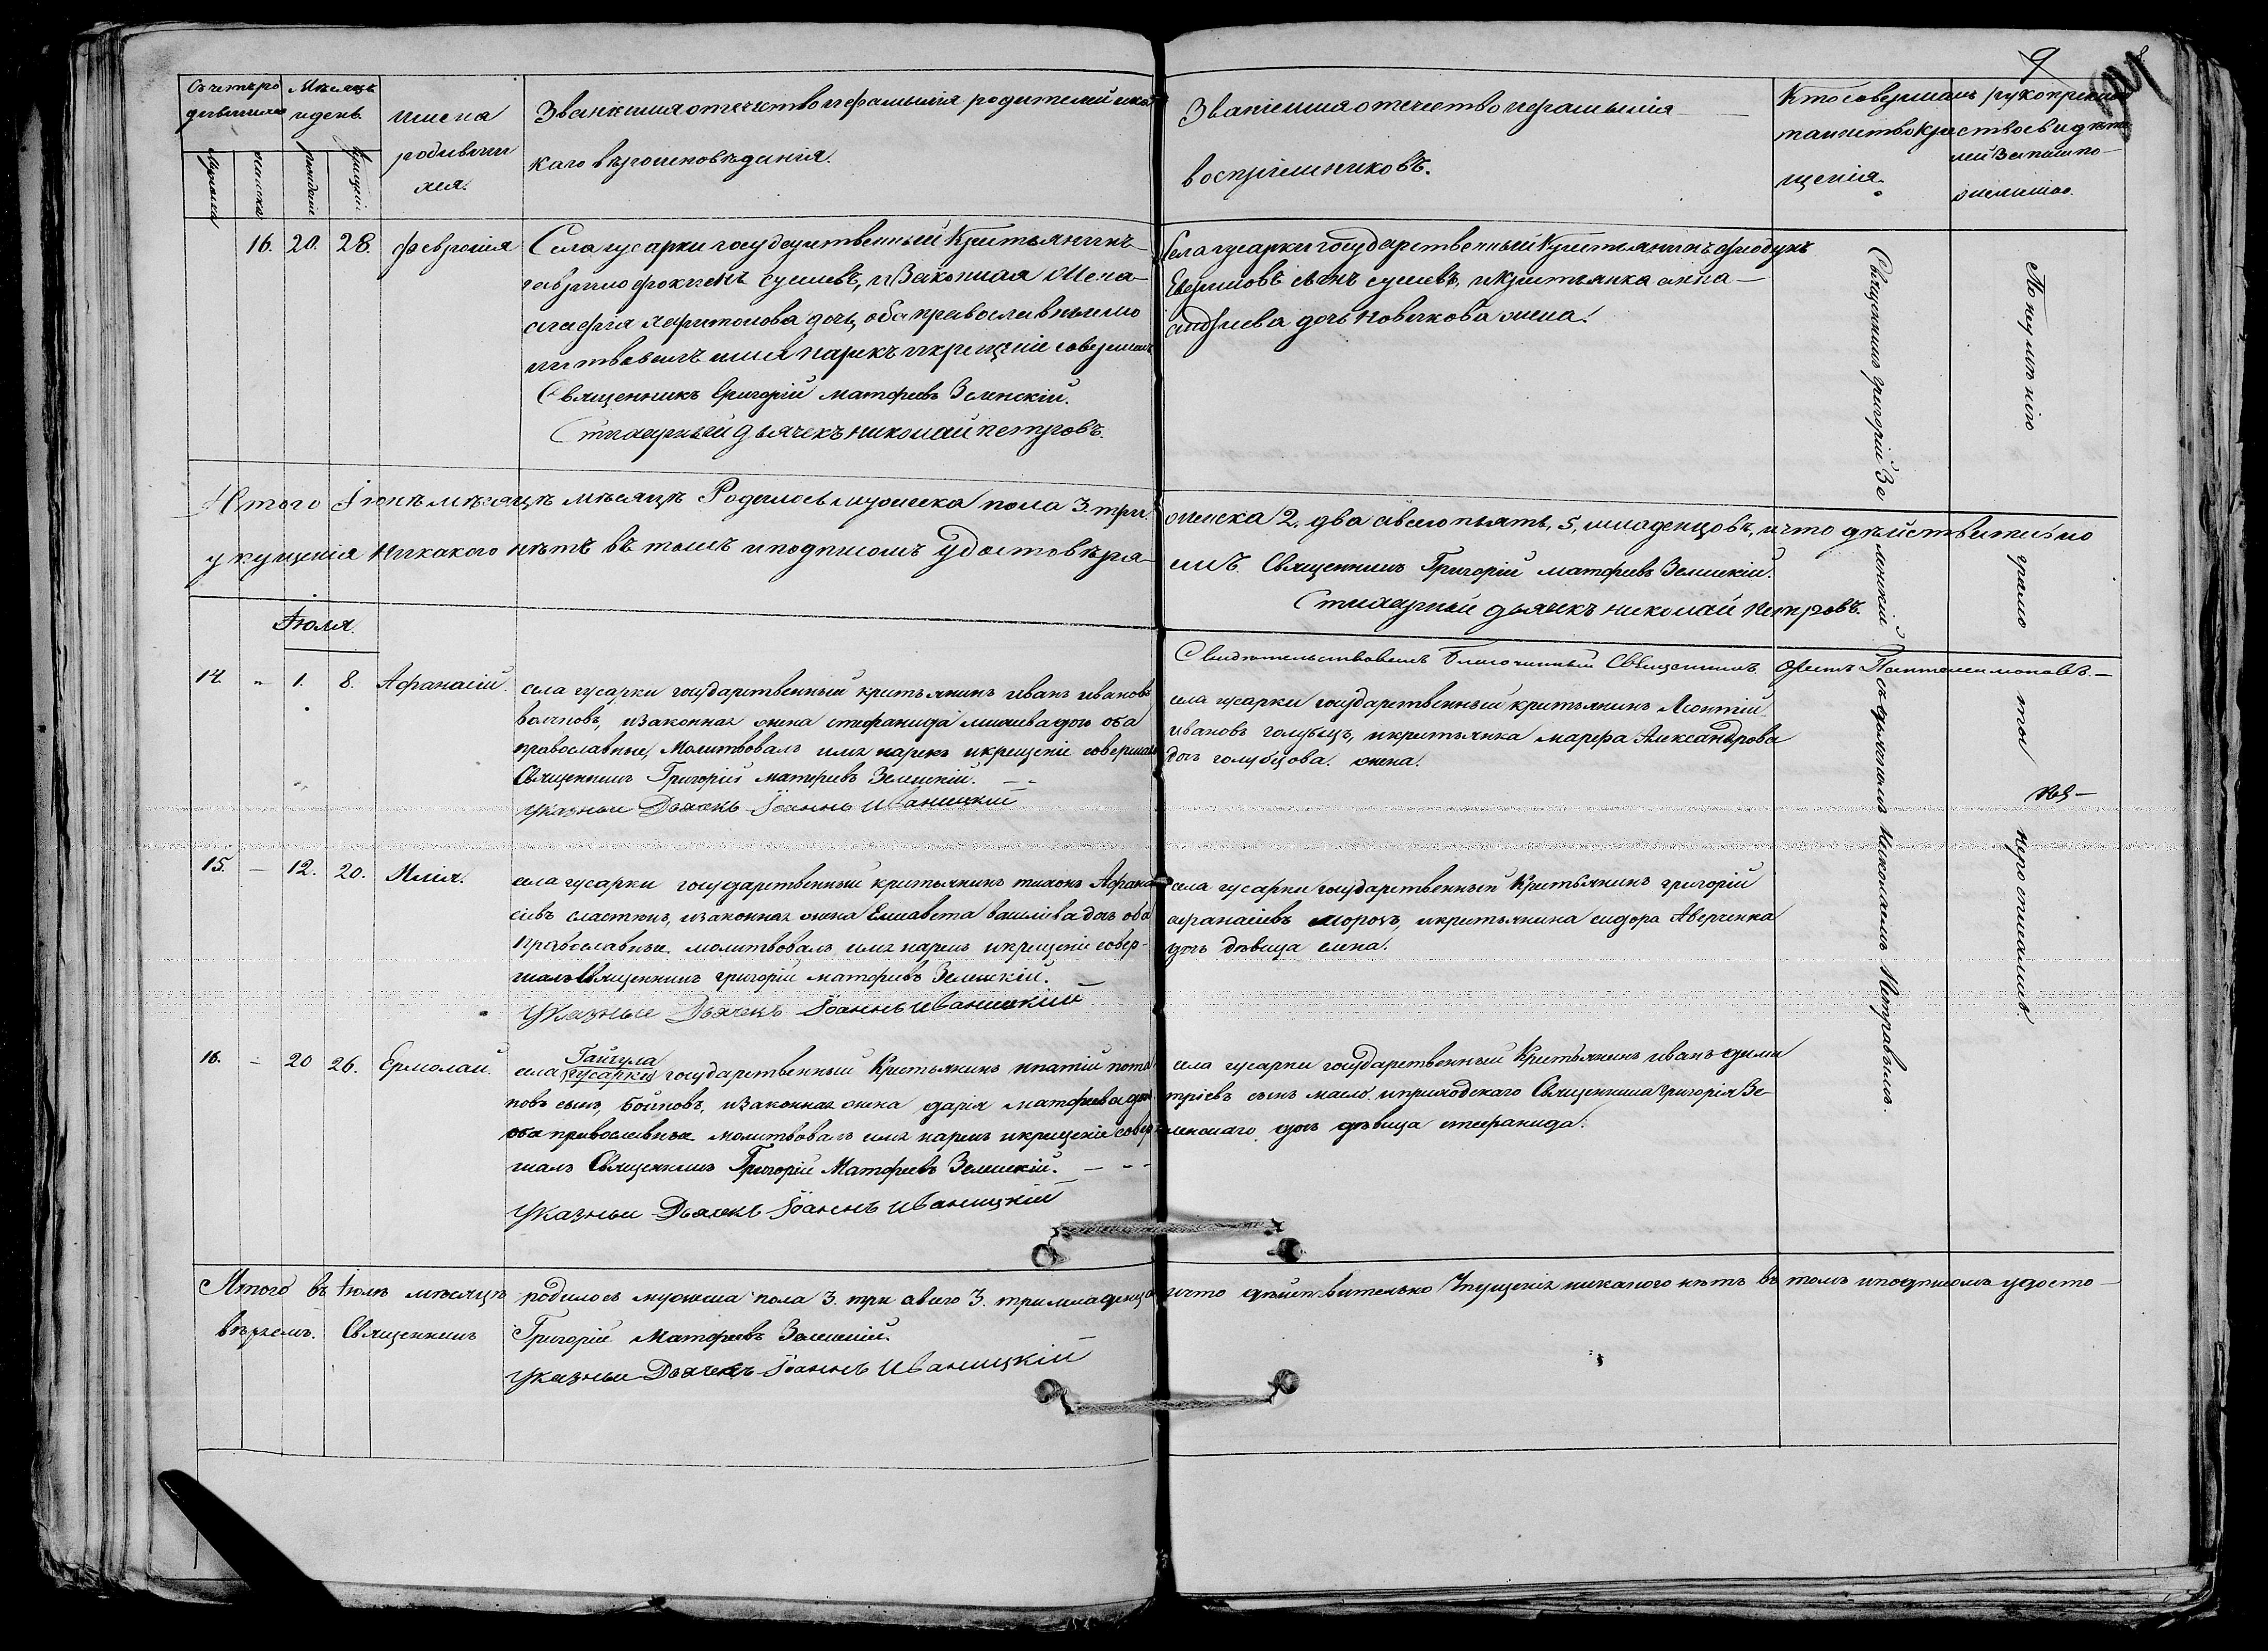 9
Счетъ ро
дившихся
Мѣсяцъ
и день
Имена
родивших
хся.
Званіе имя отчество и фамилія родителей и ка
каго вѣроисповѣданія.
Званіе имя отчество и фамилія
воспріемниковъ.
Кто совершалъ
таинство Кре
щенія.
Рукоприклад
ство свидѣте
лей записи по
желанію.
Мужеска
Женска
рожденія
крещенія
16. 20. 28. Феврогія
Села гусарки государственный Крестьянинъ
гаврило фокинъ Сушевъ, и Законная Жена
агафія харитонова дочь, оба православные мо
литвовалъ имя нарекъ и крещеніе совершалъ
Священникъ Григорій матфеевъ Зелинскій.
Стихарный дьячекъ николай петровъ.
Села гусарки государственный Крестьянинъ
сынъ сушевъ, и крестьянка анна
андреева дочь Новикова жена.
Священникъ Григорій Зе
ленскій съ дьячкомъ Николаемъ Петровымъ.
По неумѣнію
грамо
ты
не росписались.
Итого Іюнѣ мѣсяцѣ мѣсяцѣ Родилось мужеска пола 3. три.
женска 2. два а всего пять, 5, младенцовъ, и что дѣйствительно
упущенія никакого нѣтъ въ томъ и подписомъ удостовѣря
емъ. Священникъ Григорій матфеевъ Зелинскій.
Стихарный дьячекъ николай петровъ.
Іюля.
Свидѣтельствовалъ Благочинный Священникъ Пантелеимоновъ.
14. „ 1. 8. Афанасій.
села гусарки государственный крестьянинъ иванъ ивановъ
волчновъ, и законная жена стефанида дочь оба
православные, Молитвовалъ имя нарекъ и крещеніе совершалъ
Священникъ Григорій матфеевъ Зелинскій.
Указный Дьячекъ Іоаннъ Иваницкій
села гусарки государственный крестьянинъ Леонтій
ивановъ голубецъ, и крестьянка марфа Александрова
дочь голубцова жена.
15. — 12. 20. Илія.
села гусарки государственный крестьянинъ тихонъ Афана
сіевъ сластюнъ, и законная жена Елисавета василіева дочь оба
Православные. молитвовалъ имя нарекъ и крещеніе совер-
шалъ Священникъ григорій матфеевъ Зелинскій.
Указный Дьячекъ Іоаннъ Иваницкій
села гусарки государственный Крестьянинъ григорій
афанасіевъ морозъ, и крестьянина сидора Аверченка
дочь дѣвица елена.
16. — 20 26. Ермолай.
Гайчула
села гусарки государственный Крестьянинъ ипатій пота
повъ сынъ, Бойковъ, и законная жена дарія матфеева дочь
оба православные молитвовалъ имя нарекъ и крещеніе совер
шалъ Священникъ Григорій Матфеевъ Зелинскій.
Указный Дьячекъ Іоаннъ Иваницкій
села гусарки государственный Крестьянинъ иванъ дими
тріевъ сынъ масло и приходскаго Священника Григорія Зе
ленскаго дочь дѣвица стефанида.
Итого въ Іюлѣ мѣсяцѣ родилось мужеска пола 3. три а всего 3. три младенца и что дѣйствительно Упущенія никакого нѣтъ въ томъ и подписомъ удосто
вѣряемъ. Священникъ Григорій Матфеевъ Зелинскій.
Указный Дьячекъ Іоаннъ Иваницкій